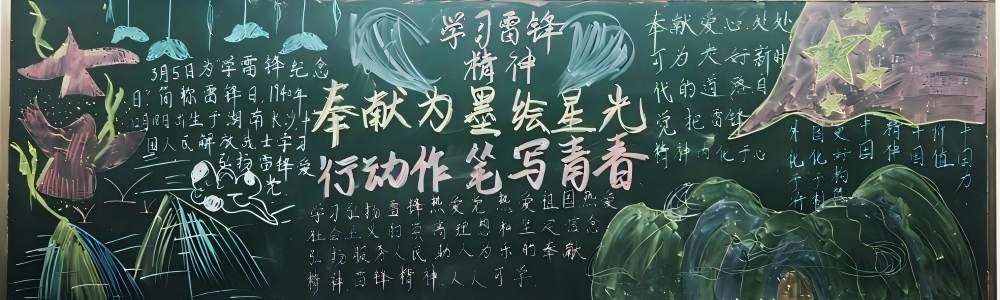 学习雷锋
精神
奉献为墨绘星光
行动作笔写青春
3月5日为学雷锋纪念
日,简称雷锋日,1940年
12月18日出生于湖南长沙
国人民解放战士学习
弘扬雷锋爱
光
学习弘扬雷锋热爱党热爱祖国热爱
社会主义的崇高理想和坚定信念
弘扬服务人民助人为乐的奉献
精神雷锋精神人人可学
奉献爱心处处
可为 好新时
代的道 自
党 把雷锋
精神内化于心
中国力
价值
中国
精神
国
外化于行